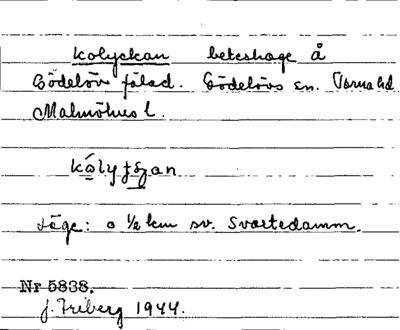 Kolyckan beteshage å
Gödelöv fälad. Gödelövs sn. Torna hd
Malmöhus l.
kålyfjan
Läge: o ½ km sv. Svartedamm.
Nr 5838.
J. Friberg 1944.